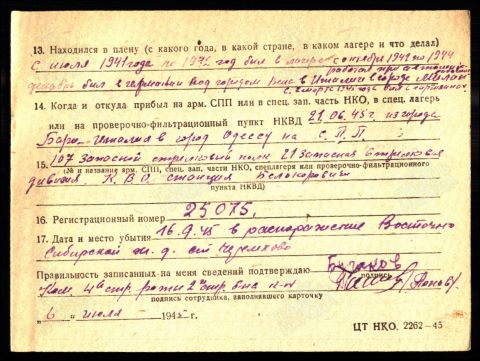 13. Находился в плену (с какого года, в какой стране, в каком лагере и что делал)
с июля 1941 года по 1942 год был в лагере с октября 1942 по 1944
работал при
был в германии под городом Вена в Италии в городе Милан
с марта 1945 года был у партизан
14. Когда и откуда прибыл на арм. СПП или в спец. зап. часть НКО, в спец. лагерь
или на проверочно-фильтрационный пункт НКВД 21.06.45 г из города
Бари-Италия в город Одессу на С.П.П.
15. 107 запасной стрелковый полк 21 запасная стрелковая
(№ и название арм. СПП, спец. зап. части НКО, спецлагеря или проверочно-фильтрационного
дивизия К.В.О. станция Белокоровичи
пункта НКВД)
16. Регистрационный номер 25075.
17. Дата и место убытия 16.9.45 в распоряжение Восточно
Сибирской ж. д. ст Черемхово
Правильность записанных на меня сведений подтверждаю
подпись
Ком. 4й стр роты 2го стр б-на
подпись сотрудника, заполнявшего карточку
„ 6 " июля 1945 г.
ЦТ НКО. 2262—45